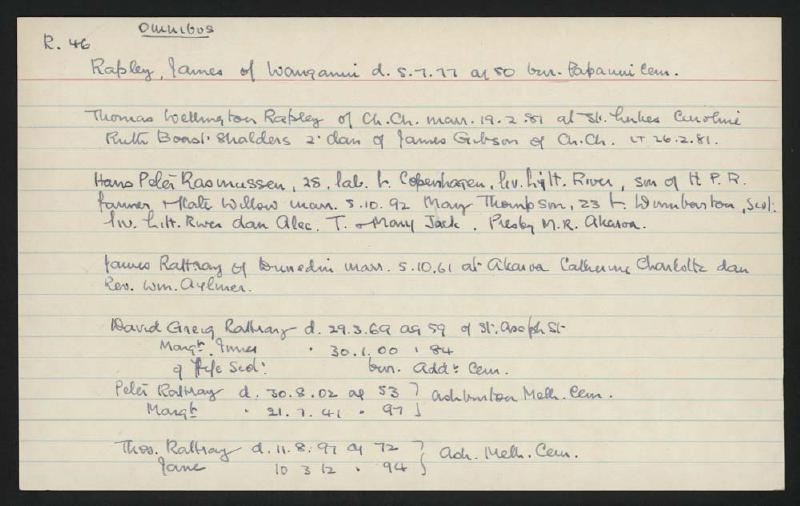 Omnibus
R. 46
Rapley, James of Wanganui d. 5.7.77 ag 50 bur. Papanui Cem.
Thomas Wellington Rapley of Ch.Ch. marr. 19.2.81 at St. Lukes Caroline
Ruth Boast Sholders 2' dau of James Gibson of Ch.Ch. LT 26.2.81.
Hans Peter Rasmussen, 28, lab. b. Copenhagen, liv. Lit. River, son of H. P. R.
farmer, + Kate Willow marr. 5.10.92 Mary Thompson, 23 b. Dumbarton, Scot:
liv. Litt. River dau Alec. T. + Mary Jack. Presby M.R. Akaroa.
James Rattray of Dunedin marr. 5.10.61 at Akaroa Catherine Charlotte dau
Rev. Wm. Aylmer.
David Greig Rattray d. 29.3.69 ag 59 of St. Asaph St
Margt. Innes " 30.1.00 " 84
of Fife Scot: bur. Add: Cem.
Peter Rattray d. 30.8.02 ag 53 } Ashburton Meth. Cem.
Margt " 21.7.41 " 97 }
Thos. Rattray d. 11.8.97 ag 72 } Ash. Meth. Cem.
Jane 10 3 12 " 94 }